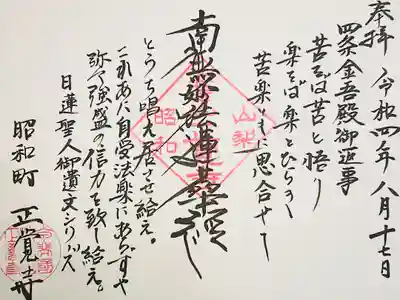 奉拝 令和四年八月十七日
四条金吾殿御返事
苦をば苦と悟り
楽をば楽とひらき
苦楽ともに思合せて
南無妙法蓮華経
とうち唱え居させ給え。
これあに自受法楽にあらずや
弥々強盛の信力を致し給え。
日蓮聖人御遺文シリーズ
昭和町 正覚寺
山梨
昭和